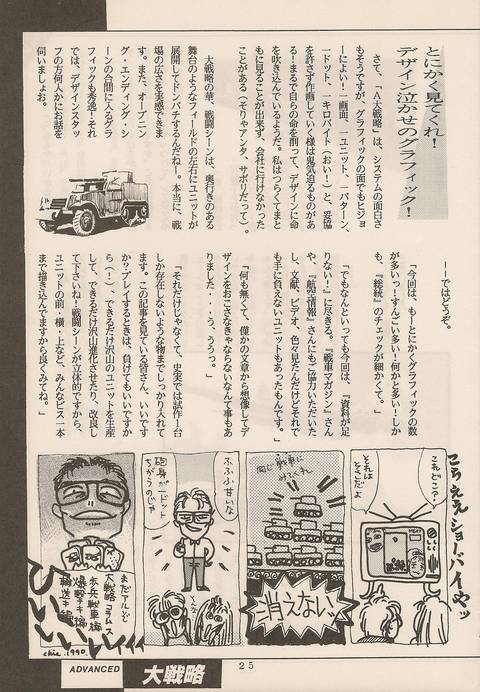 とにかく見てくれ!
デザイン泣かせのグラフィック!
さて、「A大戦略」は、システムの面白さ
もそうですが、グラフィックの面でもヒジョ
ーによい!一画面、一ユニット、一パターン、
一ドット、一キロバイト(おい!)と、妥協
を許さず作画していく様は鬼気迫るものがあ
る!まるで自らの命を削って、デザインに命
を吹き込んでいるようだ。私はつらくてまと
もに見ることが出来ず、会社に行けなかった
ことがある(そりゃアンタ、サボりだって)。
大戦略の華、戦闘シーンは、奥行きのある
舞台のようなフィールドの左右にユニットが
展開してドンパチするんだねー。本当に、戦
場の広さを実感できま
す。また、オープニン
グ・エンディング・シ
ーンの合間に入るグラ
フィックも秀逸!それ
では、デザインスタッ
フの方何人かにお話を
伺いましょお。
ーーではどうぞ。
「今回は、もーとにかくグラフィックの数
が多いっ!すんごい多い!何かと多い!しか
も、『総統』のチェックが細かくて。」
「でもなんといっても今回は、『資料が足
りない!』に尽きる。『戦車マガジン』さん
や、『航空情報』さんにもご協力いただいた
し、文献、ビデオ、色々見たんだけどそれで
も手に負えないユニットもあったもんです。」
「何も無くて、僅かの文章から想像してデ
ザインをおこさなきゃならないなんて事もあ
りました・・・う、ううっ。」
「それだけじゃなくて、史実では試作1台
しか存在しないような物までしっかり入れて
ます。この記事を見ている皆さん、いいです
か?プレイするときは、負けてもいいですか
ら(!)、できるだけ沢山のユニットを生産
して、できるだけ沢山進化させたり、改良し
て下さいね!戦闘シーンが立体的ですから、
ユニットの前・横・上など、みんなビス一本
まで描き込んでますから良くみてね。」
こらええショーバイやッ
これどこ?
それは
そこだよ
同じ戦車に
みえくれ
消えない!
ふふふ甘いな
砲身が一ドット
ちがうのじゃ
まだアルぞ
大戦略コラムス
歩兵戦車編
爆撃キ編
輸送キ編
chie.1990.
25
ADVANCED 大戦略